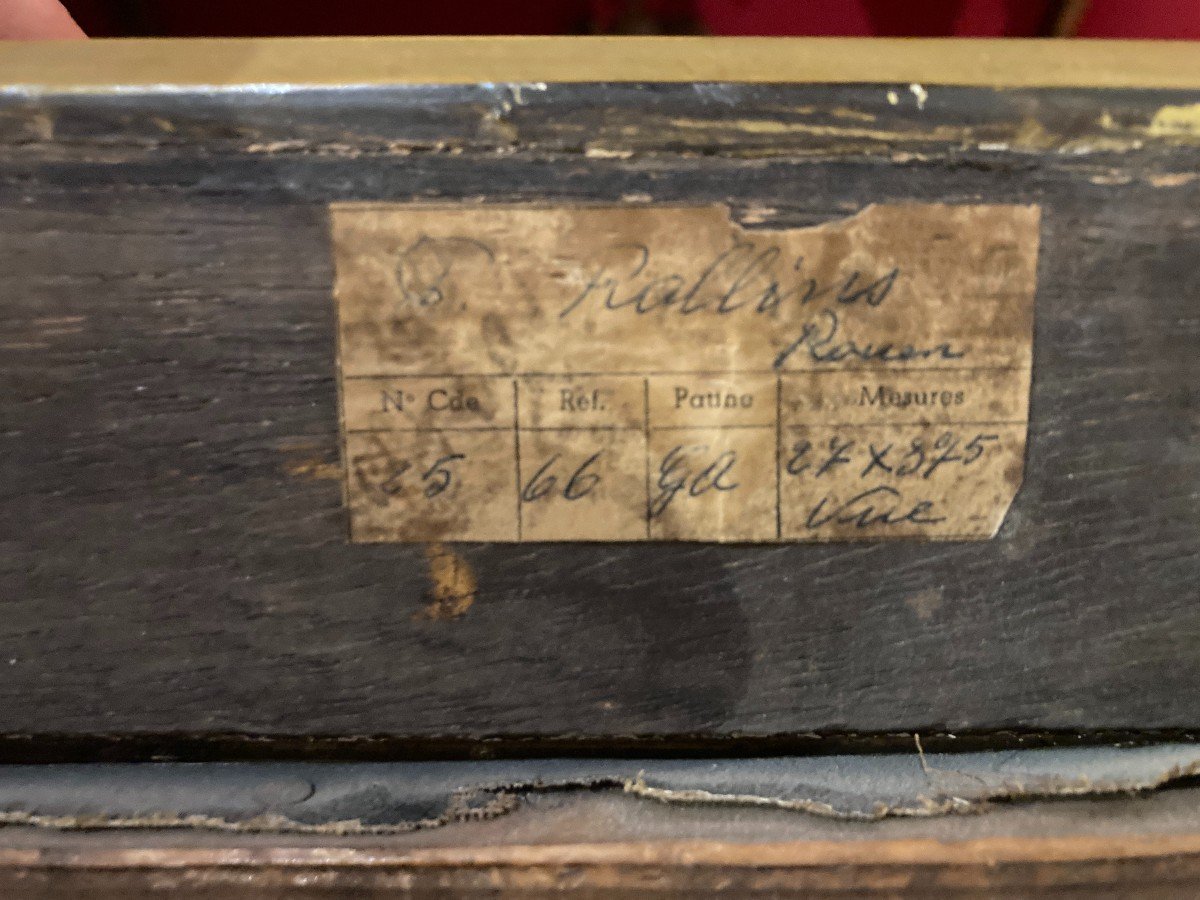 Rallins
Rouen
N° Cde Ref. Patine Mesures
25 66 GA 27 x 375
Vue